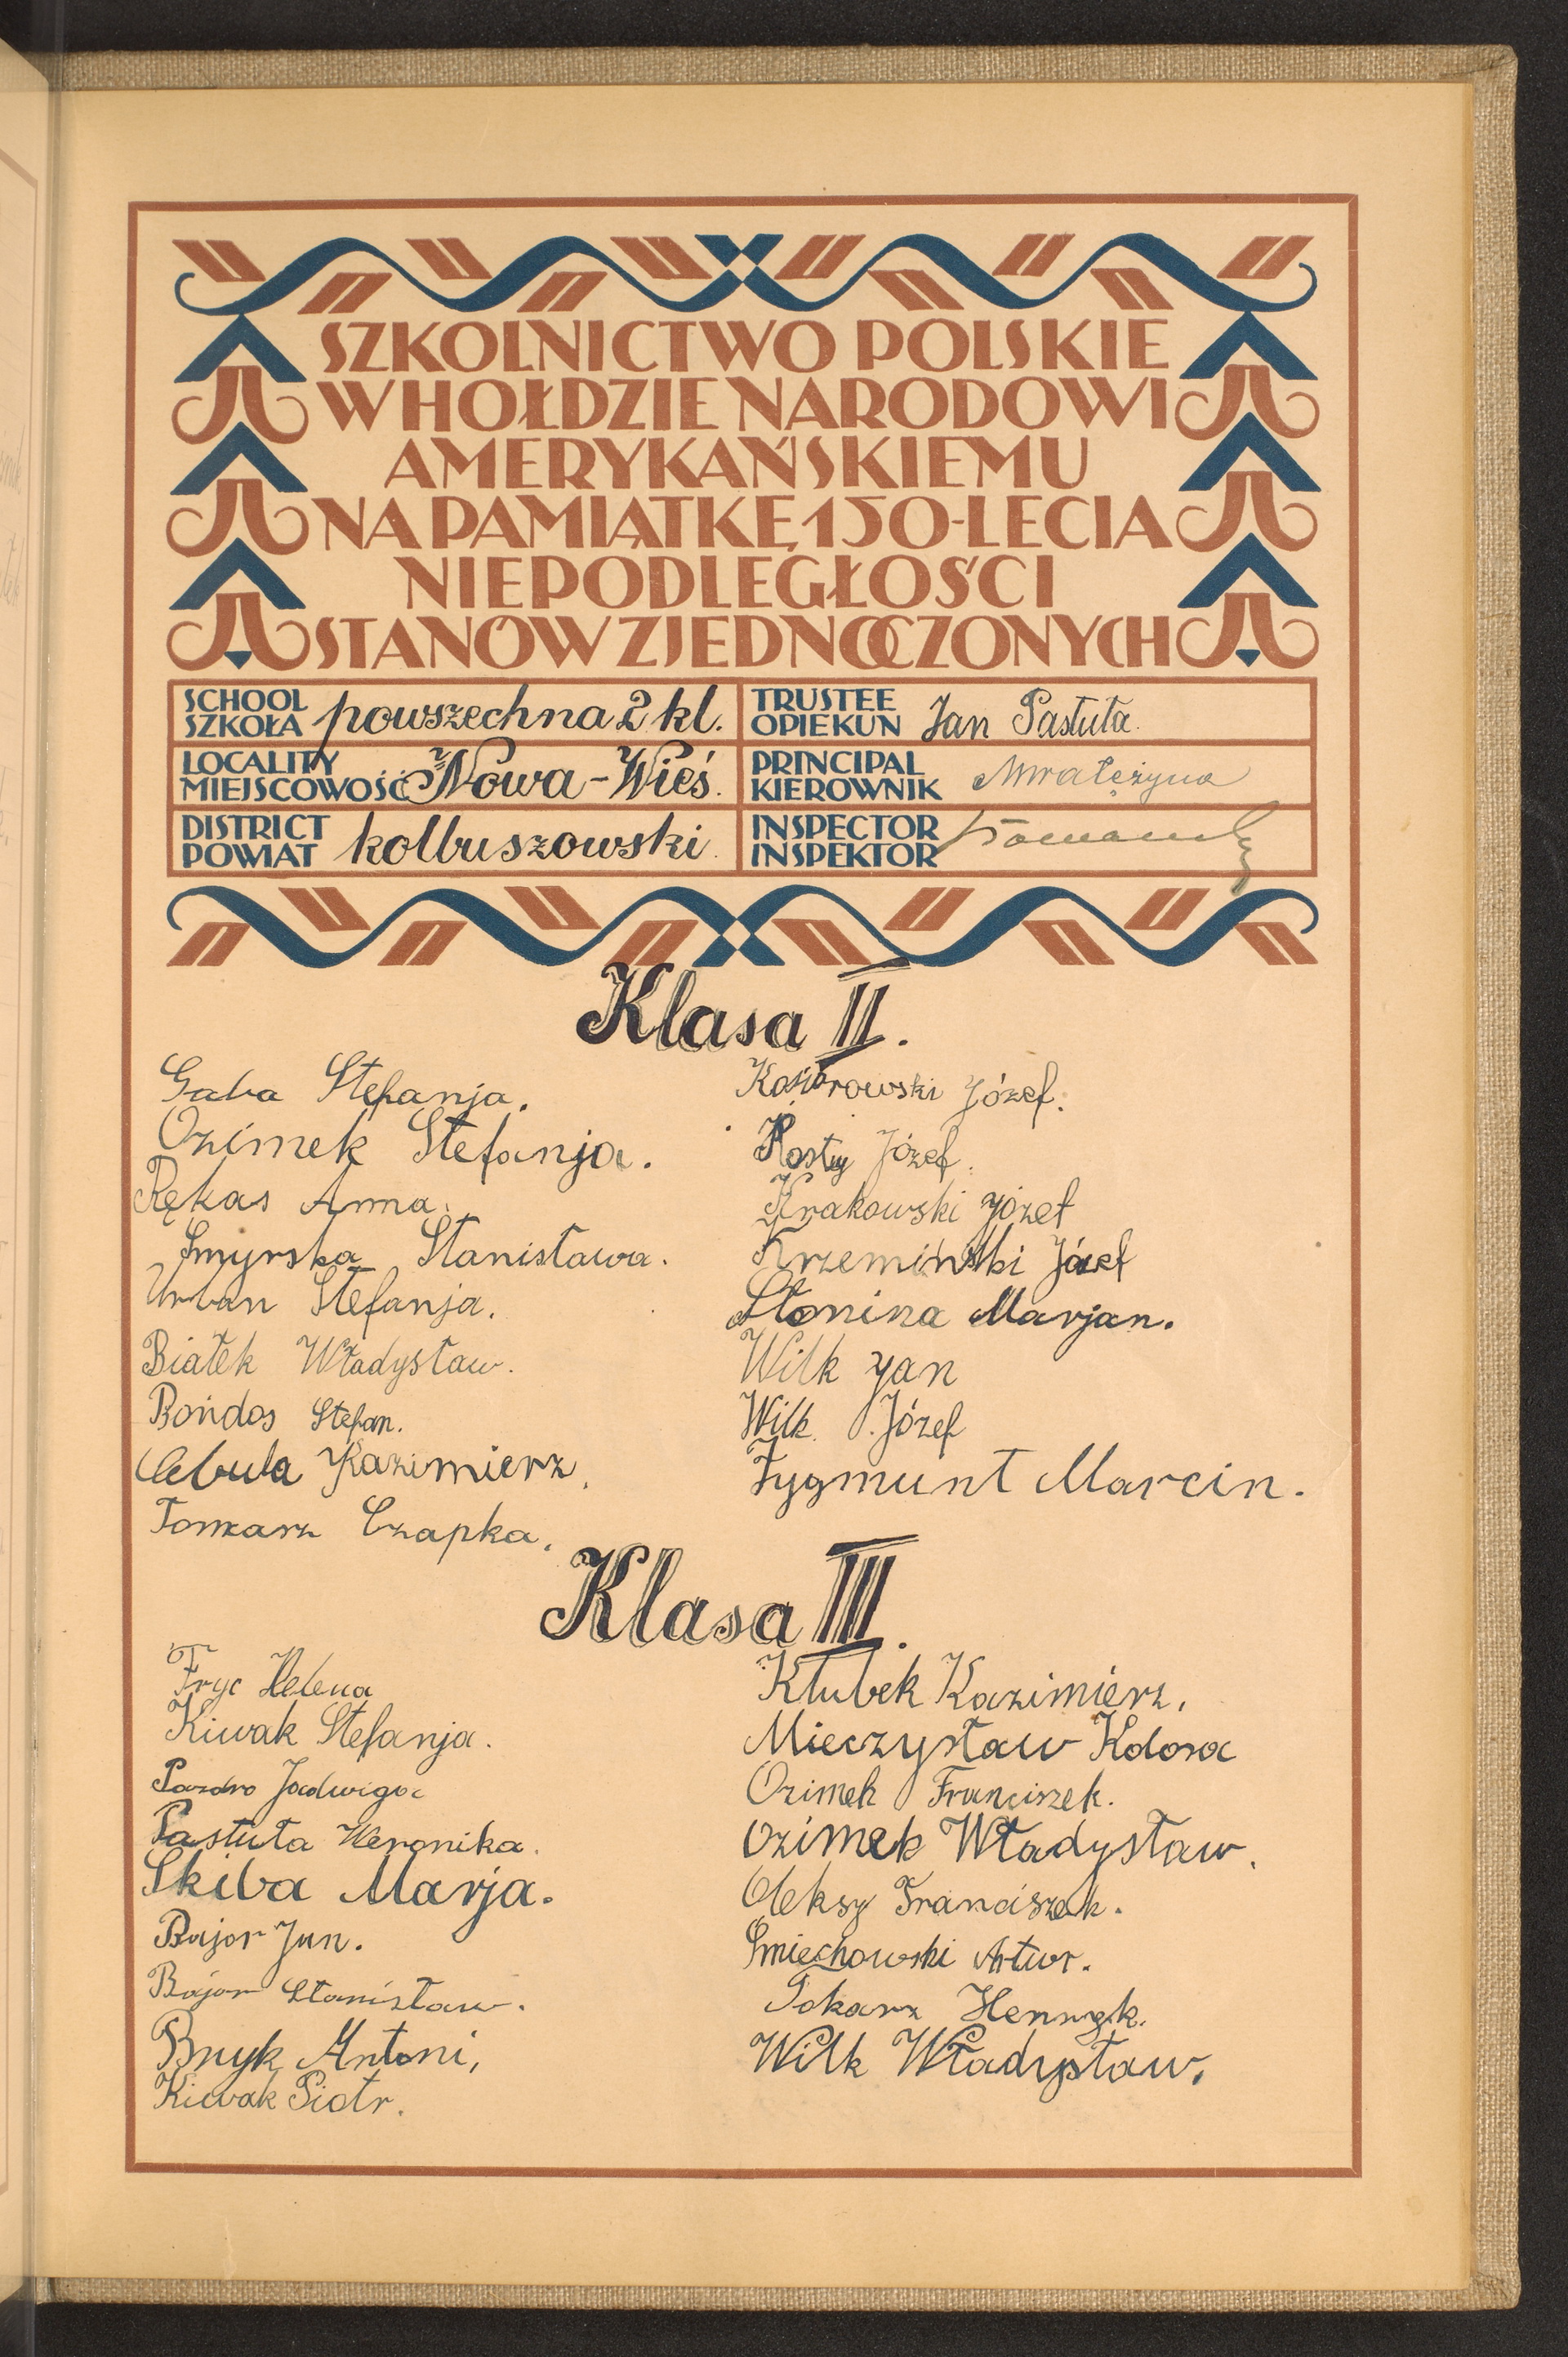 SZKOLNICTWO POLSKIE
W HOŁDZIE NARODOWI
AMERYKAŃSKIEMU
NA PAMIĄTKĘ 150-LECIA
NIEPODLEGŁOŚCI
STANÓW ZJEDNOCZONYCH
SCHOOL
SZKOŁA powszechna 2 kl.
LOCALITY
MIEJSCOWOŚĆ Nowa-Wieś.
DISTRICT
POWIAT kolbuszowski.
TRUSTEE
OPIEKUN Jan Pastuła.
PRINCIPAL
KIEROWNIK
INSPECTOR
INSPEKTOR
Klasa II.
Gaba Stefanja.
Ozimek Stefanja.
Rękas Anna.
Smyrska Stanisława.
Urban Stefanja.
Białek Władysław.
Bońdos Stefan.
Cebula Kazimierz.
Tomasz Czapka.
Kosiorowski Józef.
Kosty Józef.
Krakowski Józef
Krzemiński Józef
Słonina Marjan.
Wilk Jan
Wilk Józef
Zygmunt Marcin.
Klasa III.
Fryc Helena
Kiwak Stefanja.
Pazdro Jadwiga
Pastuła Weronika.
Skiba Marja.
Bajor Jan.
Bajor Stanisław.
Bryk Antoni,
Kiwak Piotr.
Kłubek Kazimierz.
Mieczysław Kolosa
Ozimek Franciszek.
Ozimek Władysław.
Oleksy Franciszek.
Śmiechowski Artur.
Tokarz Henryk.
Wilk Władysław.